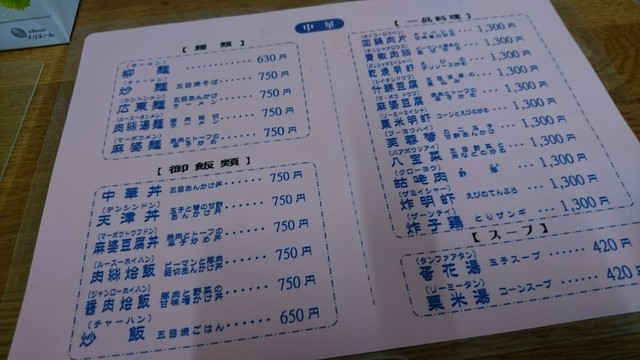 中華
【麺類】
(ラーメン)
柳麺 630円
(チャーメン)
炒麺 五目焼そば 750円
(カントンメン)
広東麺 五目あんかけラーメン 750円
(ルースータンメン)
肉絲湯麺 750円
(マーボウメン)
麻婆麺 750円
【御飯類】
中華丼 五目あんかけ丼 750円
(テンシンドン)
天津丼 玉子と蟹の甘酢あんかけ丼 750円
(マーボウトウフドン)
麻婆豆腐丼 750円
(ルースーホイハン)
肉絲燴飯 ピーマンと豚肉細切あんかけ丼 750円
(ジャンローホイハン)
醤肉燴飯 豚肉と野菜の甘味噌かけ丼 750円
(チャーハン)
炒飯 五目焼ごはん 650円
【一品料理】
(ホイコーロウペン)
回鍋肉片 1,300円
青椒肉絲 1,300円
乾焼明蝦 1,300円
什錦豆腐 1,300円
(マーボウドウフ)
麻婆豆腐 1,300円
(リーミーミイシャ)
粟米明蝦 コーンとえびの炒め 1,300円
(フーヨウハイ)
芙蓉蟹 1,300円
(パアボウツアイ)
八宝菜 1,300円
(クローヨウ)
咕咾肉 1,300円
(ザミイシャー)
炸明虾 えびのてんぷら 1,300円
(ザーンチイ)
炸子鶏 とりザンギ 1,300円
【スープ】
(タンファアタン)
蛋花湯 玉子スープ 420円
(リーミータン)
粟米湯 コーンスープ 420円
エリエール